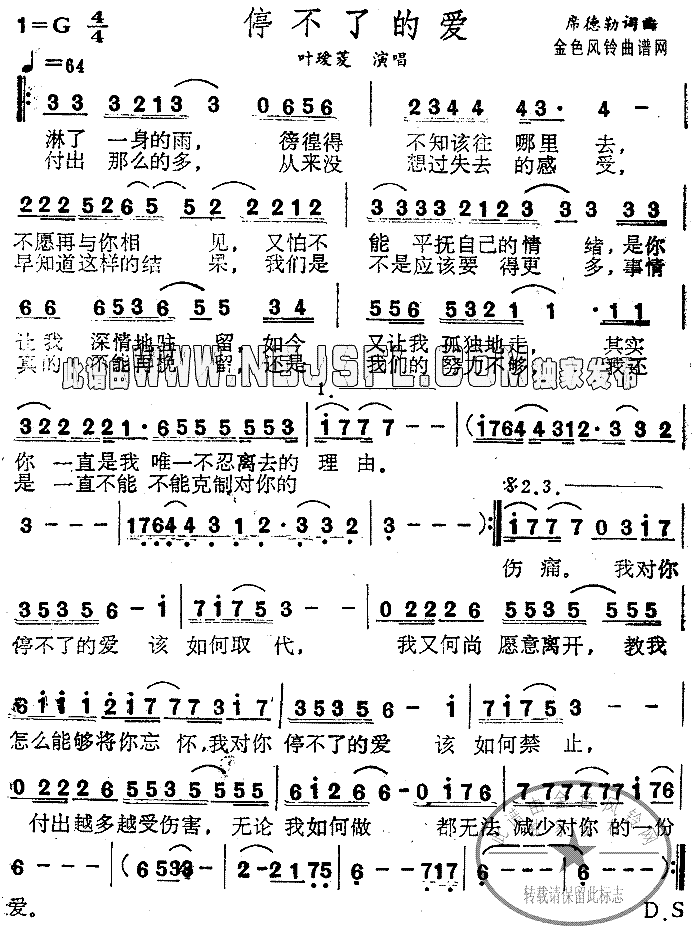 1=G 4/4 停不了的爱 席德勒词曲
♩=64 叶瑷菱 演唱 金色风铃曲谱网
33 3213 3 0656 | 2344 43· 4--
淋了 一身的雨， 徬徨得 不知该往 哪里 去，
付出 那么的多， 从来没 想过失去 的感 受，
222 52655 52 2212 | 3333 2123 33 33
不愿再与你相 见，又怕不 能 平抚自己的情 绪，是你
早知道这样的结 果，我们是 不是应该要 得更 多，事情
66 6536 55 34 | 556 5321 1 ·11
让我 深情地驻 留，如今 又让我 孤独地走， 其实
真的 不能再挽 留，还是 我们的 努力不够，我还
此谱由WWW.NBJSPL.COM独家发布
1.
322 222 21·6555 5553 | i77 7-- | (i7644312·33 2
你 一直是我 唯一不忍离去的 理 由。
是 一直不能 不能克制对你的
𝄋2.3.
3--- | 176443 12·33 2 | 3---):‖ i77 7 03i7
伤 痛。 我对你
3535 6-i | 7i75 3-- | 02226 5535 555
停不了的爱 该 如何取 代， 我又何尚 愿意离开，教我
6iii 2i777 3i7 | 3535 6-i | 7i75 3--
怎么能够将你忘 怀，我对你 停不了的爱 该 如何禁 止，
02226 5535 555 | 6i26 6-0i76 | 7 77777i76
付出越多越受伤害，无论 我如何做 都无法 减少对你的一份
6--- | (6533 3-- | 2-2175 | 6-717 | 6---):‖
爱。 D.S
转载请保留此标志